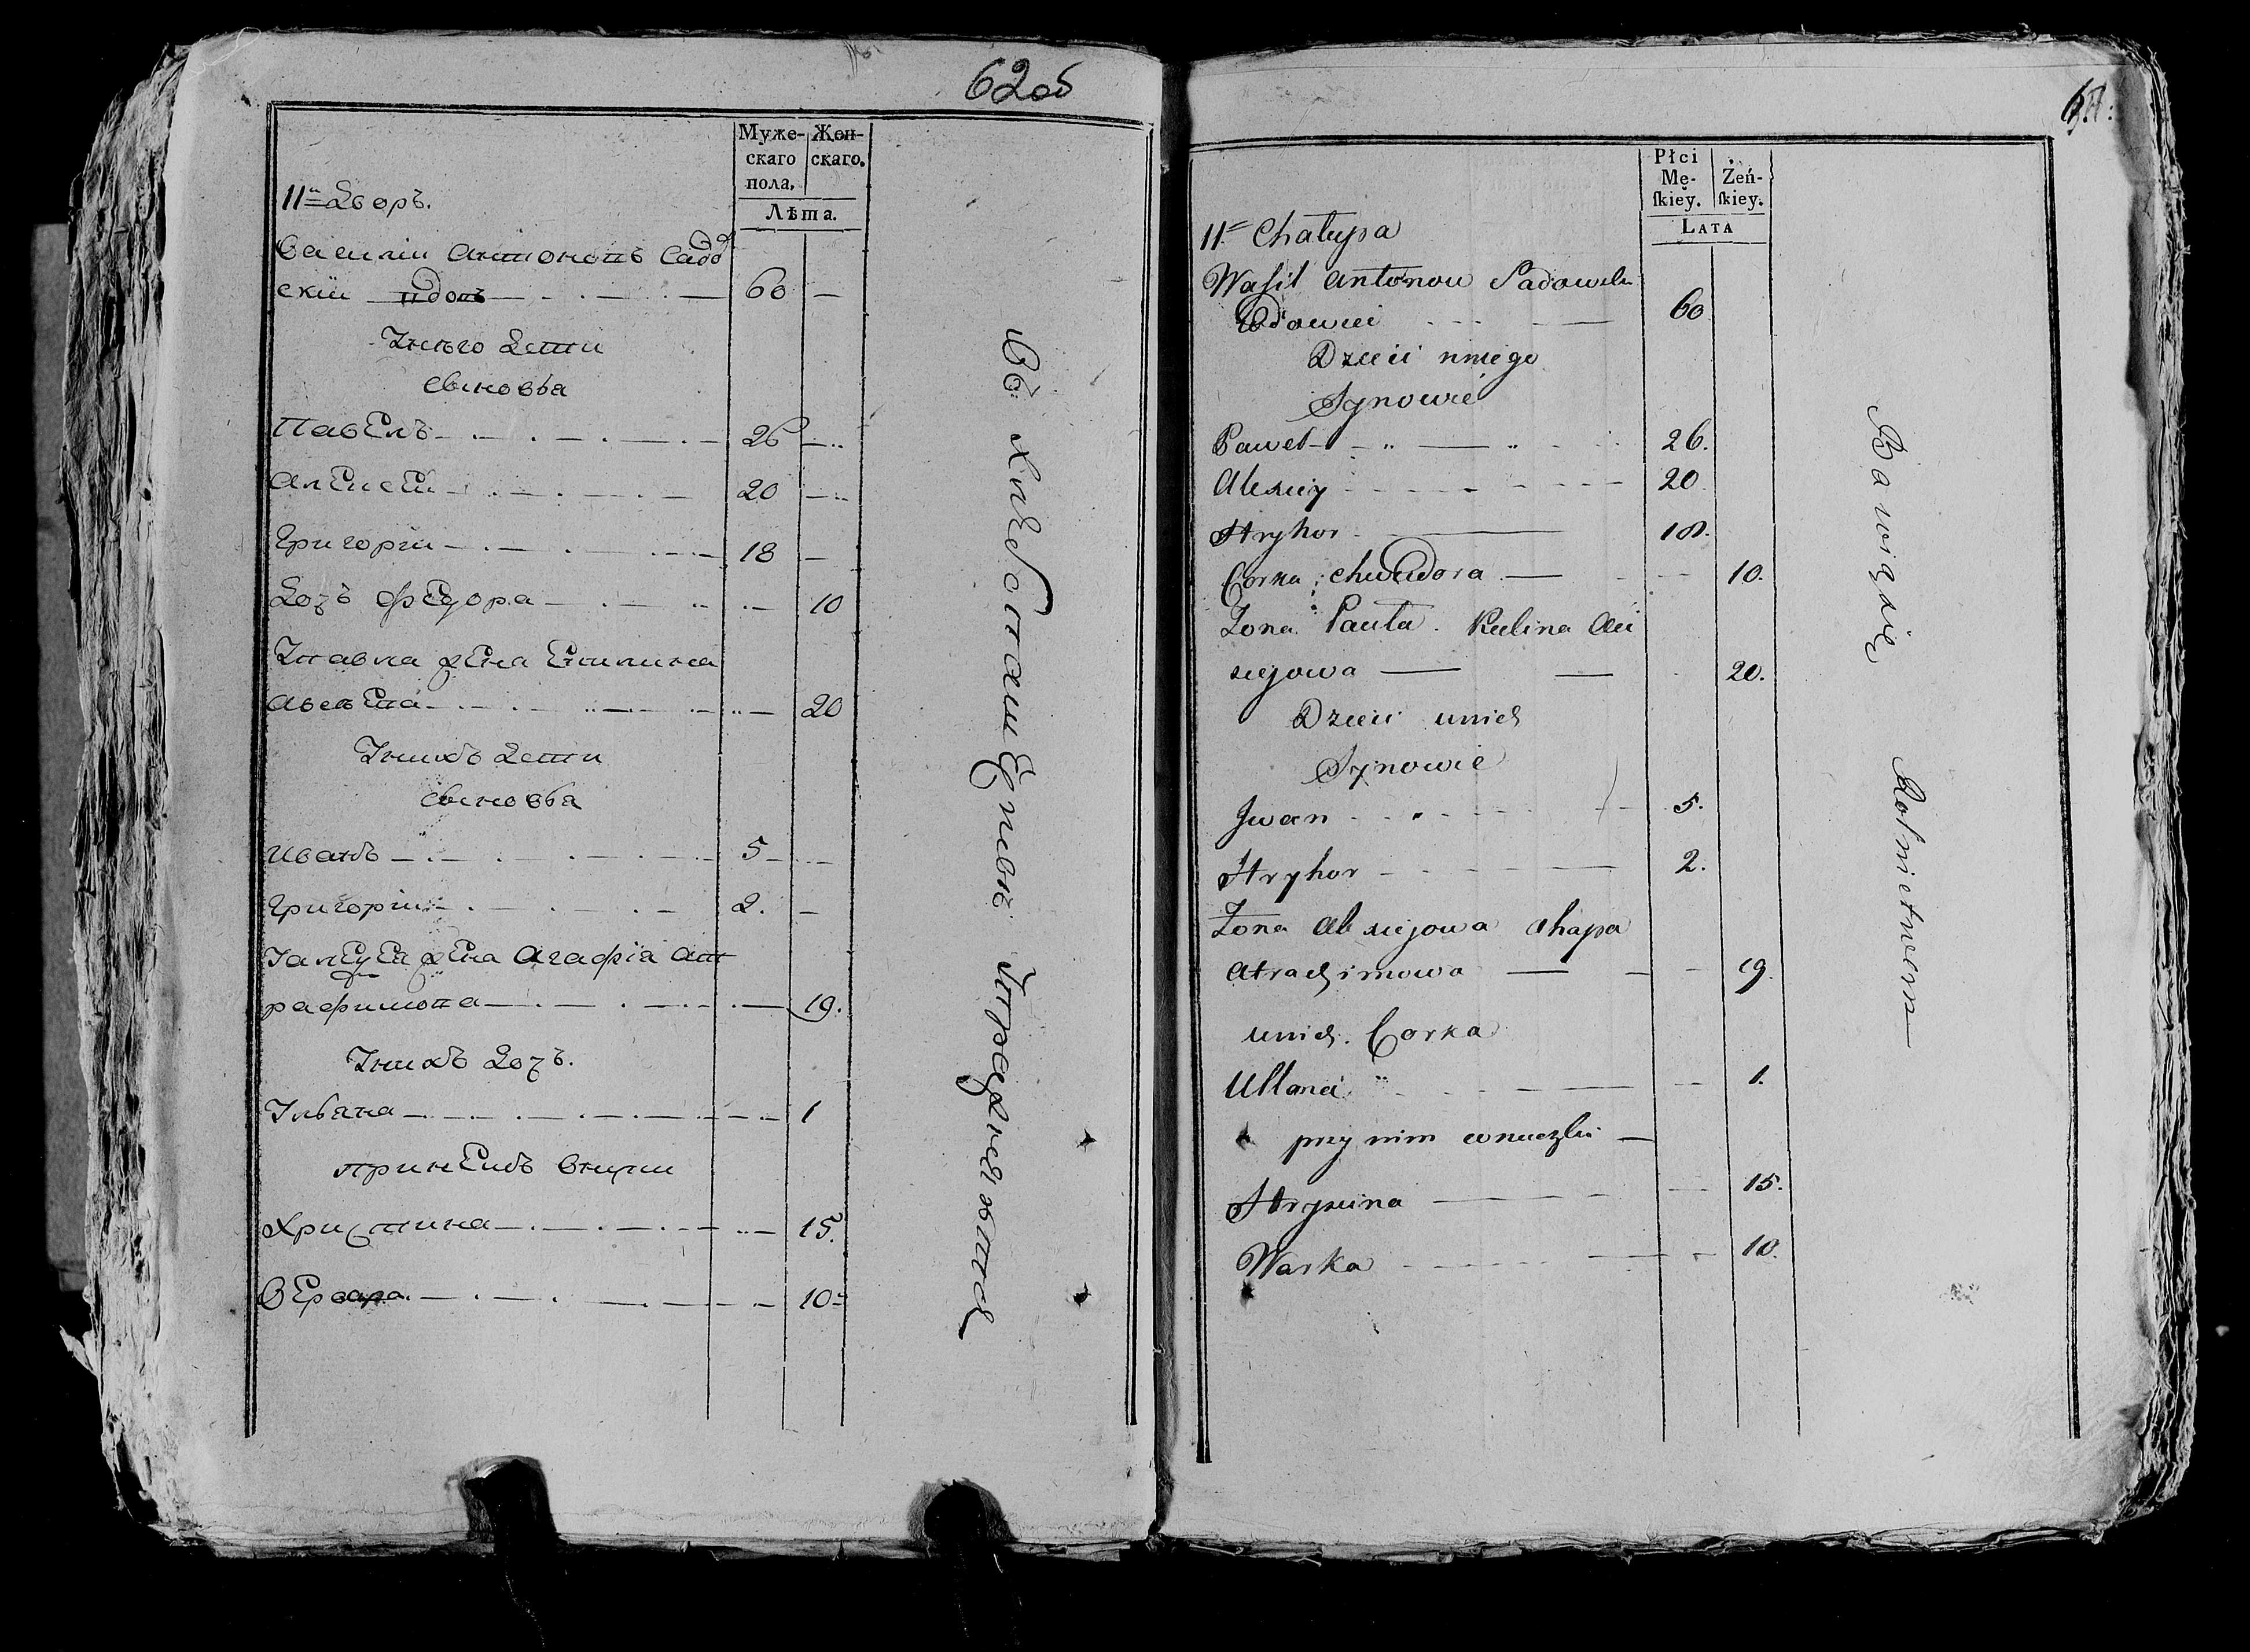 62об
Муже-
скаго
пола,
Жен-
скаго.
Лѣта.
11й Дворъ.
Василіи Антоновъ Садо
скіи вдовъ 60 —
Унего Дети
Сыновья
Павелъ 26 —
Алексеи 20 —
Григоріи 18 —
Дочъ Федора 10
Упавла жена Екилина
Авсеева 20
Унихъ Дети
Сыновья
Иванъ 5 —
Григоріи 2. —
Уалексея жена Агафія Ат
рафимова 19.
Унихъ Дочъ.
Ульяна 1
принемъ внучки
Христина 15.
Вервара 10
Въ хлебопашественныхъ упражняются
Płci
Mę-
ſkiey.
Żeń-
ſkiey.
LATA
11. Chałupa
Wasil Antonow Sadowski
Wdowiec 60
Dzieci uniego
Synowie
Paweł 26.
Alexiey 20
Hryhor 18.
Corka Chwiedora 10.
Zona Pawła. Kulina Awi
siejowa 20.
Dzieci unich
Synowie
Jwan 5.
Hryhor 2.
Żona Alexiejowa Ahapa
Atrachimowa 19.
unich. Corka
Ullana 1.
przy nim wnuczki —
Hrysina 15.
Warka 10.
Bawią się Rolnictwem